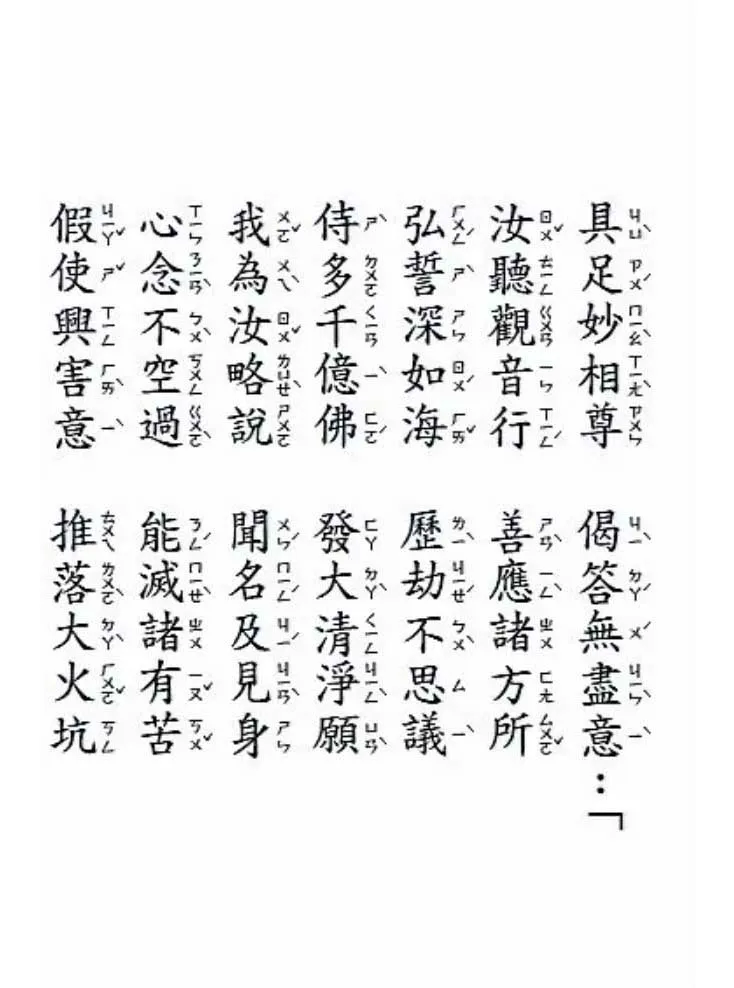 具足妙相尊　偈答無盡意：「
汝聽觀音行　善應諸方所
弘誓深如海　歷劫不思議
侍多千億佛　發大清淨願
我為汝略說　聞名及見身
心念不空過　能滅諸有苦
假使興害意　推落大火坑